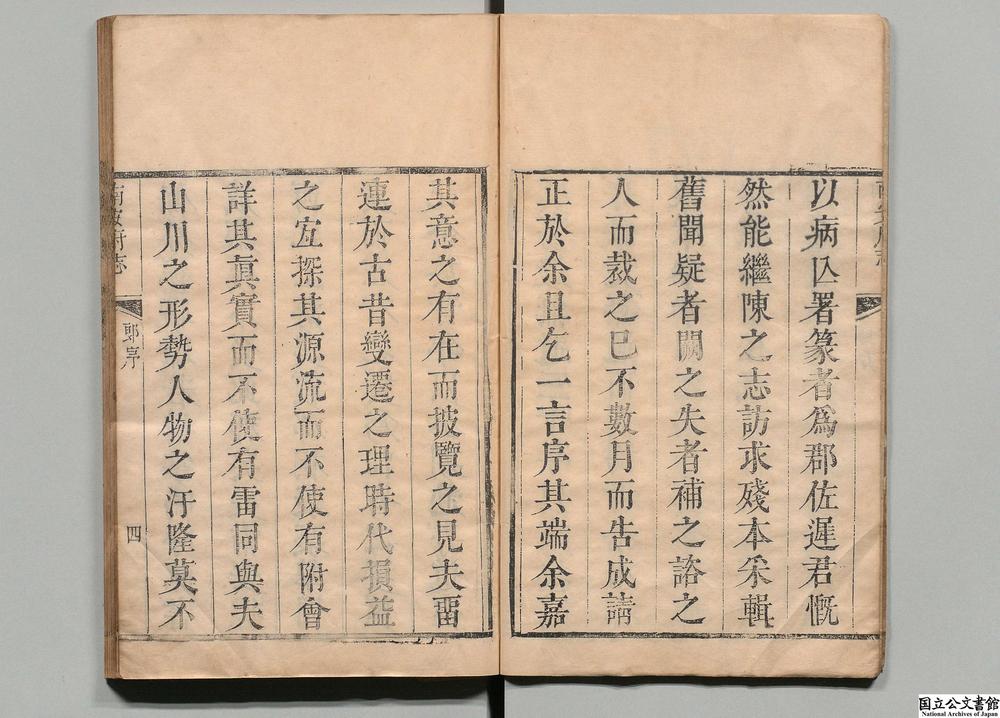 以病亾署篆者爲郡佐遲君慨
然能繼陳之志訪求殘本采輯
舊聞疑者闕之失者補之諮之
人而裁之已不數月而告成請
正於余且乞一言序其端余嘉
其意之有在而披覽之見夫畱
連於古昔變遷之理時代損益
之宜探其源流而不使有附會
詳其眞實而不使有雷同與夫
山川之形勢人物之汙隆莫不
郭序
四
国立公文書館
National Archives of Japan